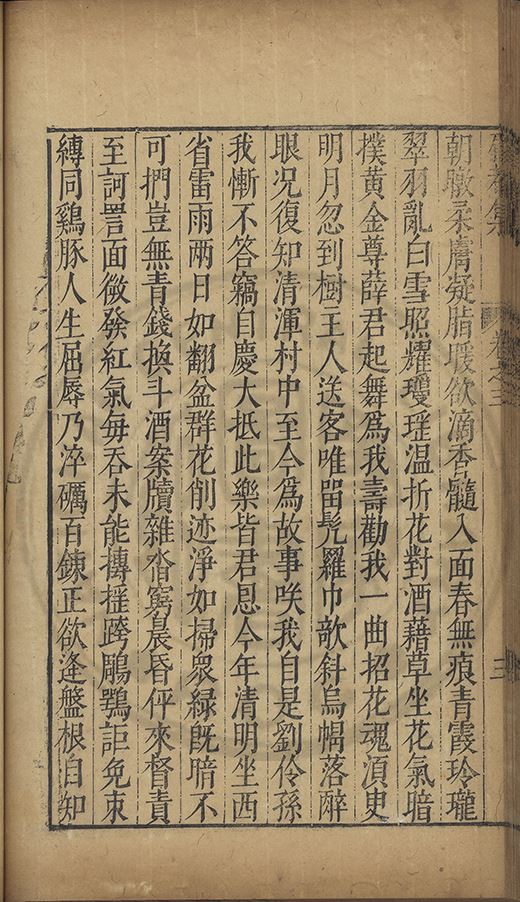 卷之三
三
朝暾柔膚凝脂暖欲滴香髓入面春無痕青霞玲瓏
翠羽亂白雪照耀瓊瑤温折花對酒藉草坐花氣暗
撲黃金尊薛君起舞爲我壽勸我一曲招花魂湏臾
明月忽到樹主人送客唯畱髠羅巾欹斜烏幘落醉
眼况復知清渾村中至今爲故事咲我自是劉伶孫
我慚不答竊自慶大抵此樂皆君恩今年清明坐西
省雷雨兩日如翻盆群花削迹淨如掃衆緑旣暗不
可捫豈無青錢換斗酒案牘雜沓窮晨昏伻來督責
至訶詈面微發紅氣每吞未能摶捶跨鵰鶚詎免束
縳同鷄豚人生屈辱乃淬礪百鍊正欲逢盤根自知